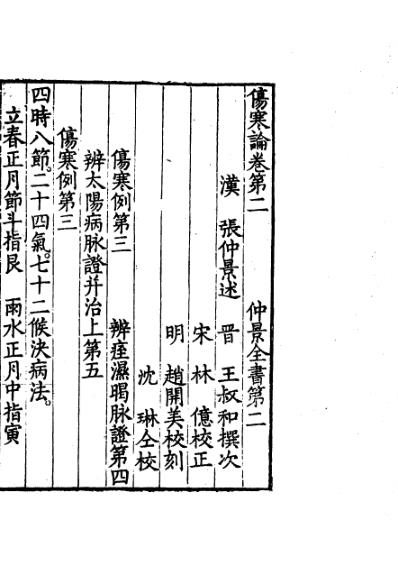 傷寒論卷第二　　　仲景全書第二
漢　張仲景述　晋　王叔和撰次
宋　林　億校正
明　趙開美校刻
沈　琳仝校
傷寒例第三　　　辨痓濕暍脉證第四
辨太陽病脉證并治上第五
傷寒例第三
四時八節。二十四氣。七十二候决病法。
立春正月節斗指艮　雨水正月中指寅